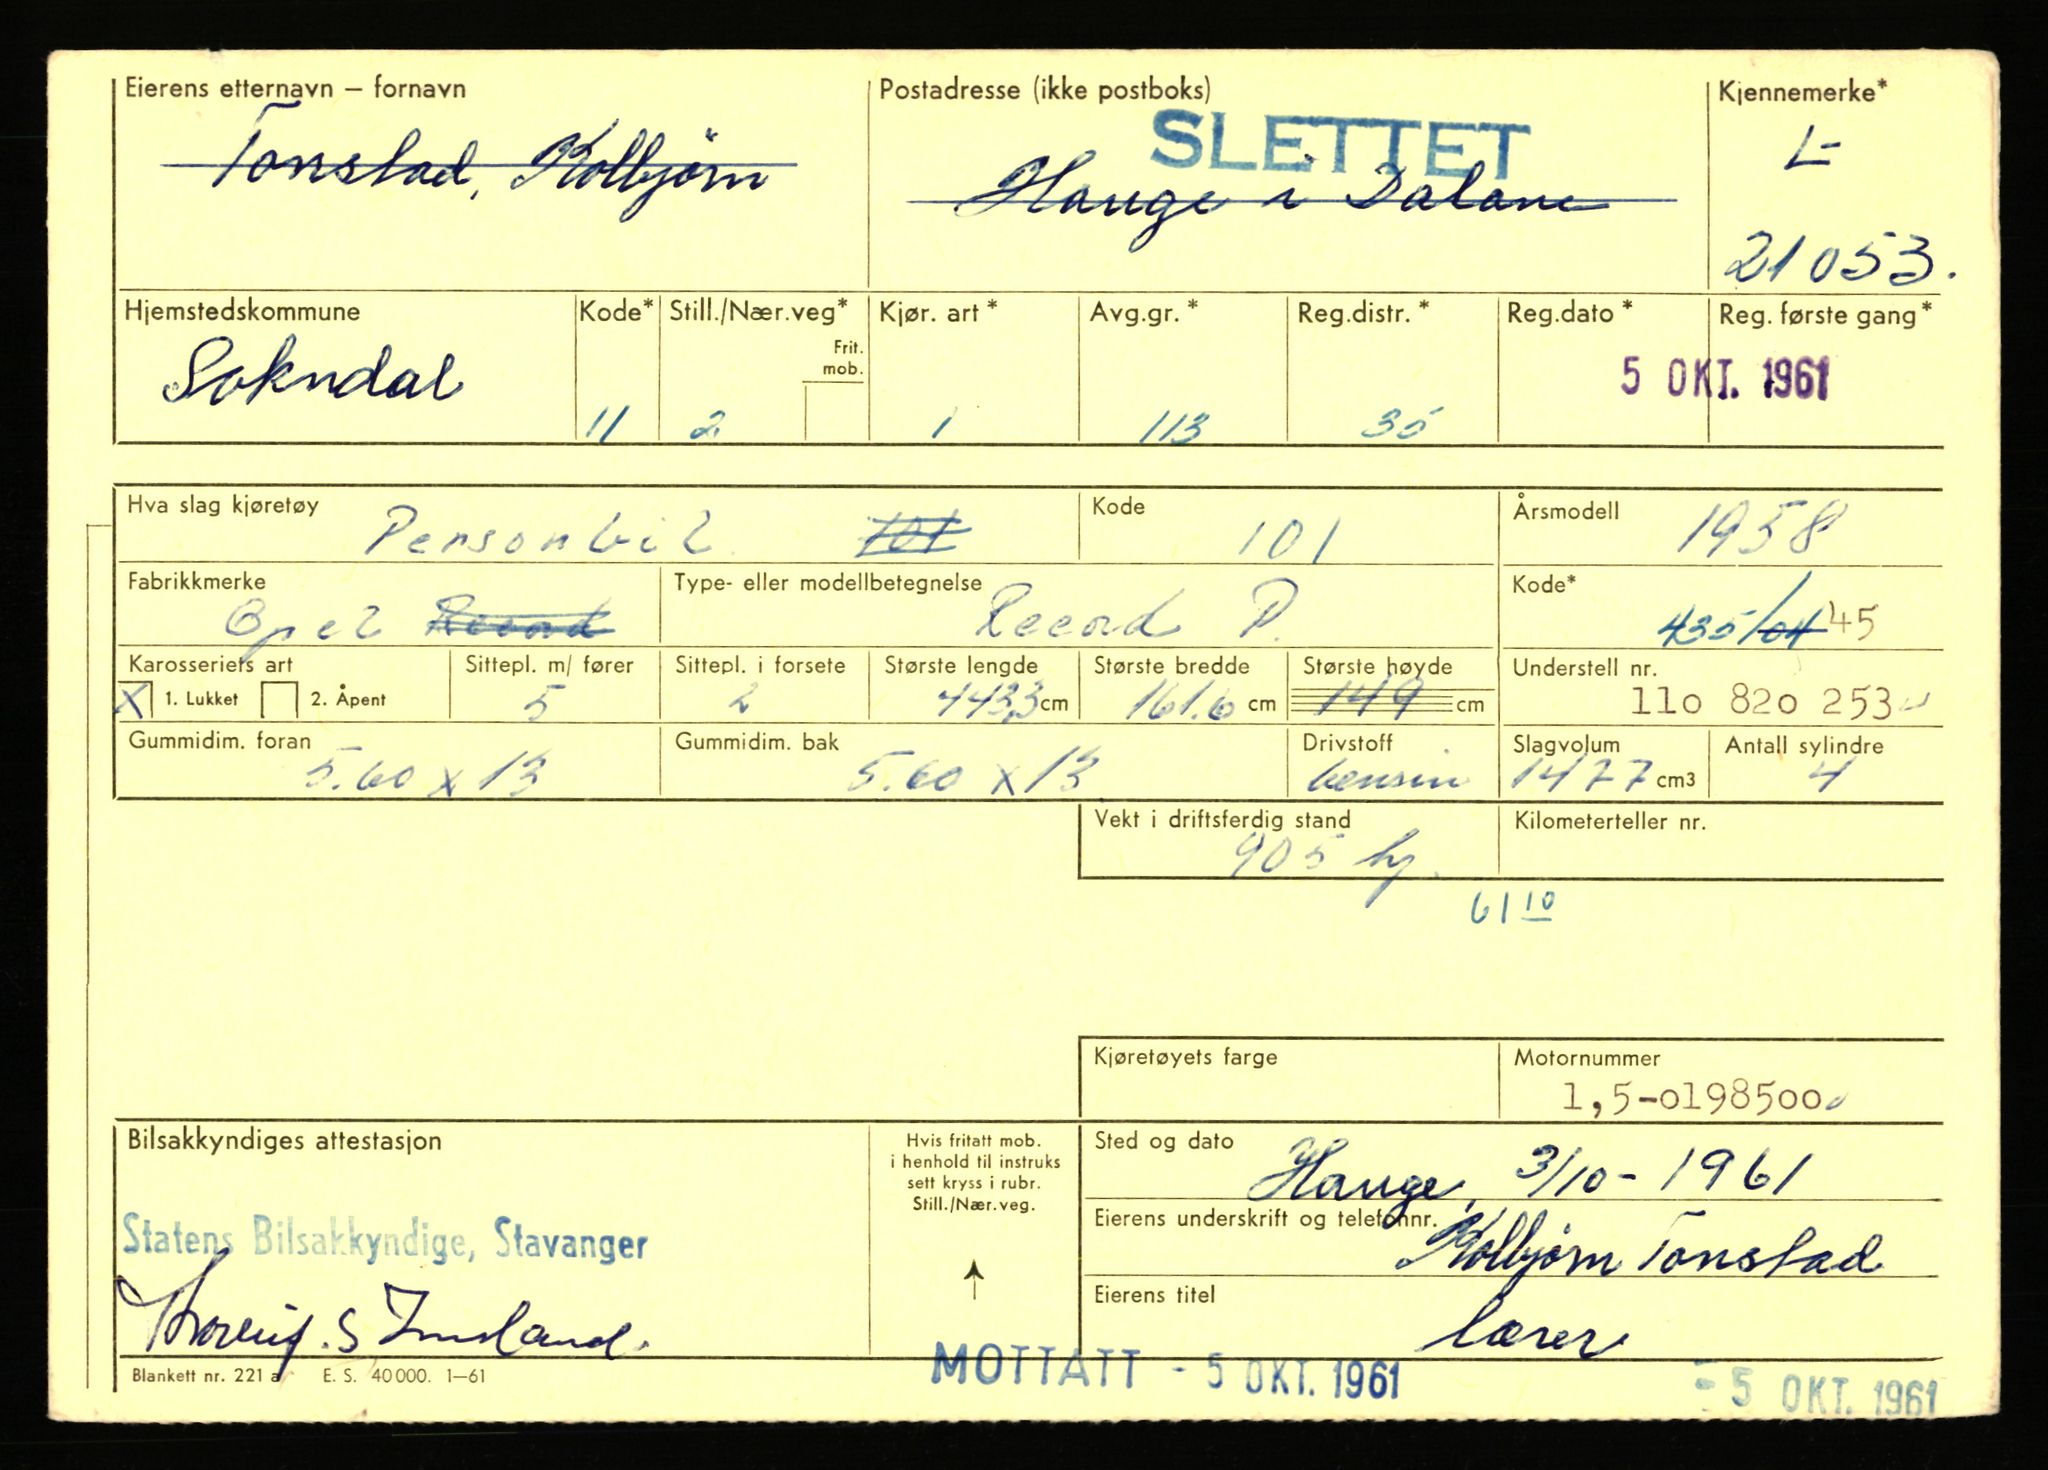 Eierens etternavn – fornavn Postadresse (ikke postboks) Kjennemerke*
SLETTET
Tonstad, Kolbjörn Hauge i Dalane L-
21053.
Hjemstedskommune Kode* Still./Nær.veg* Kjør. art* Avg.gr.* Reg.distr.* Reg.dato* Reg. første gang*
Frit. mob.
Sokndal 11 2 1 113 35 5 OKT. 1961
Hva slag kjøretøy Kode Årsmodell
Personbil 101 101 1958
Fabrikkmerke Type- eller modellbetegnelse Kode*
Opel Record Record P. 435/04 45
Karosseriets art Sittepl. m/ fører Sittepl. i forsete Største lengde Største bredde Største høyde Understell nr.
X 1. Lukket 2. Åpent 5 2 443,3 cm 161.6 cm 149 cm 110 820 253
Gummidim. foran Gummidim. bak Drivstoff Slagvolum Antall sylindre
5.60 x 13 5.60 x 13 bensin 1477 cm3 4
Vekt i driftsferdig stand Kilometerteller nr.
905 kg.
61 10
Kjøretøyets farge Motornummer
1,5-0198500
Bilsakkyndiges attestasjon
Hvis fritatt mob.
i henhold til instruks
sett kryss i rubr.
Still./Nær.veg.
Sted og dato
Hauge, 3/10 - 1961
Eierens underskrift og telefonnr.
Kolbjørn Tonstad
Statens Bilsakkyndige, Stavanger
Eierens titel
lærer
Blankett nr. 221 a E. S. 40 000. 1—61
MOTTATT - 5 OKT. 1961
- 5 OKT. 1961